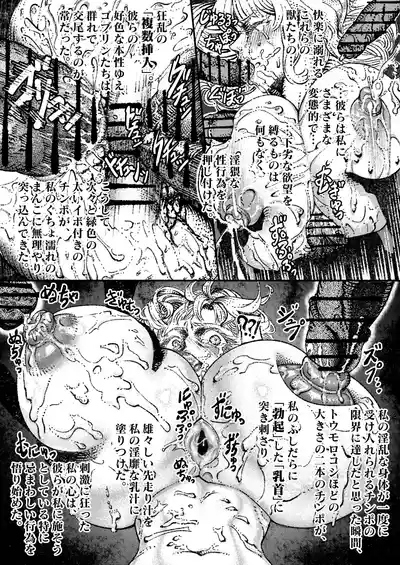 快楽に溺れる
こいつらの
獣たちの…!
…彼らは私に、
さまざまな
変態的で…
…下劣な欲望を
縛るものは
何もなく、
淫猥な
性行為を
押し付けた。
狂乱の
「複数挿入」。
彼らの
好色な本性ゆえ、
ゴブリンたちは
群れで
交尾するのが
常だった…
こうして
次々と緑色の
太いイボ付きの
チンポが、
私のぐちょ濡れの
まんこに無理やり
突っ込んできた。
私の淫乱な身体が一度に
受け入れられるチンポの
限界に達したと思った瞬間、
トウモロコシほどの!
大きさの二本のチンポが、
私のふしだらに
「勃起」した「乳首」に
突き刺さり
雄々しい先走り汁を
私の淫靡な乳汁に
塗りつけた。
刺激に狂った
私の心は、
彼らが私に施そう
としている特に
忌まわしい行為を
悟り始めた。
??!
ぬぢゃっ
ぬちゃっ
ずにゅっ